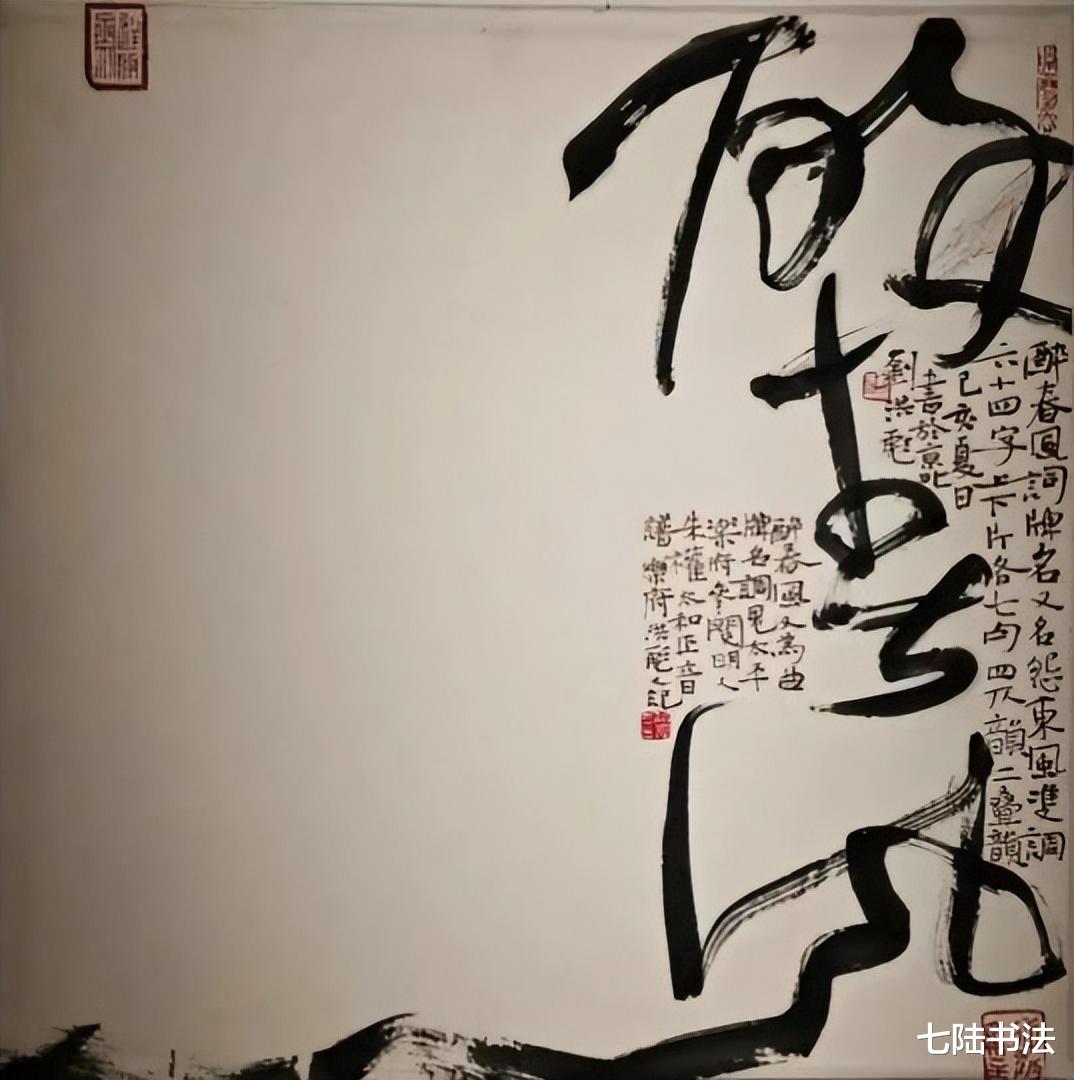 醉春風
醉春風詞牌名又名怨東風雙調
六十四字上下片各七句四仄韻二疊韻
己亥夏日
書於京北
劉洪彪
醉春風又為曲
牌名調見太平
樂府參閱明人
朱權太和正音
譜樂府洪彪又記
七陆书法